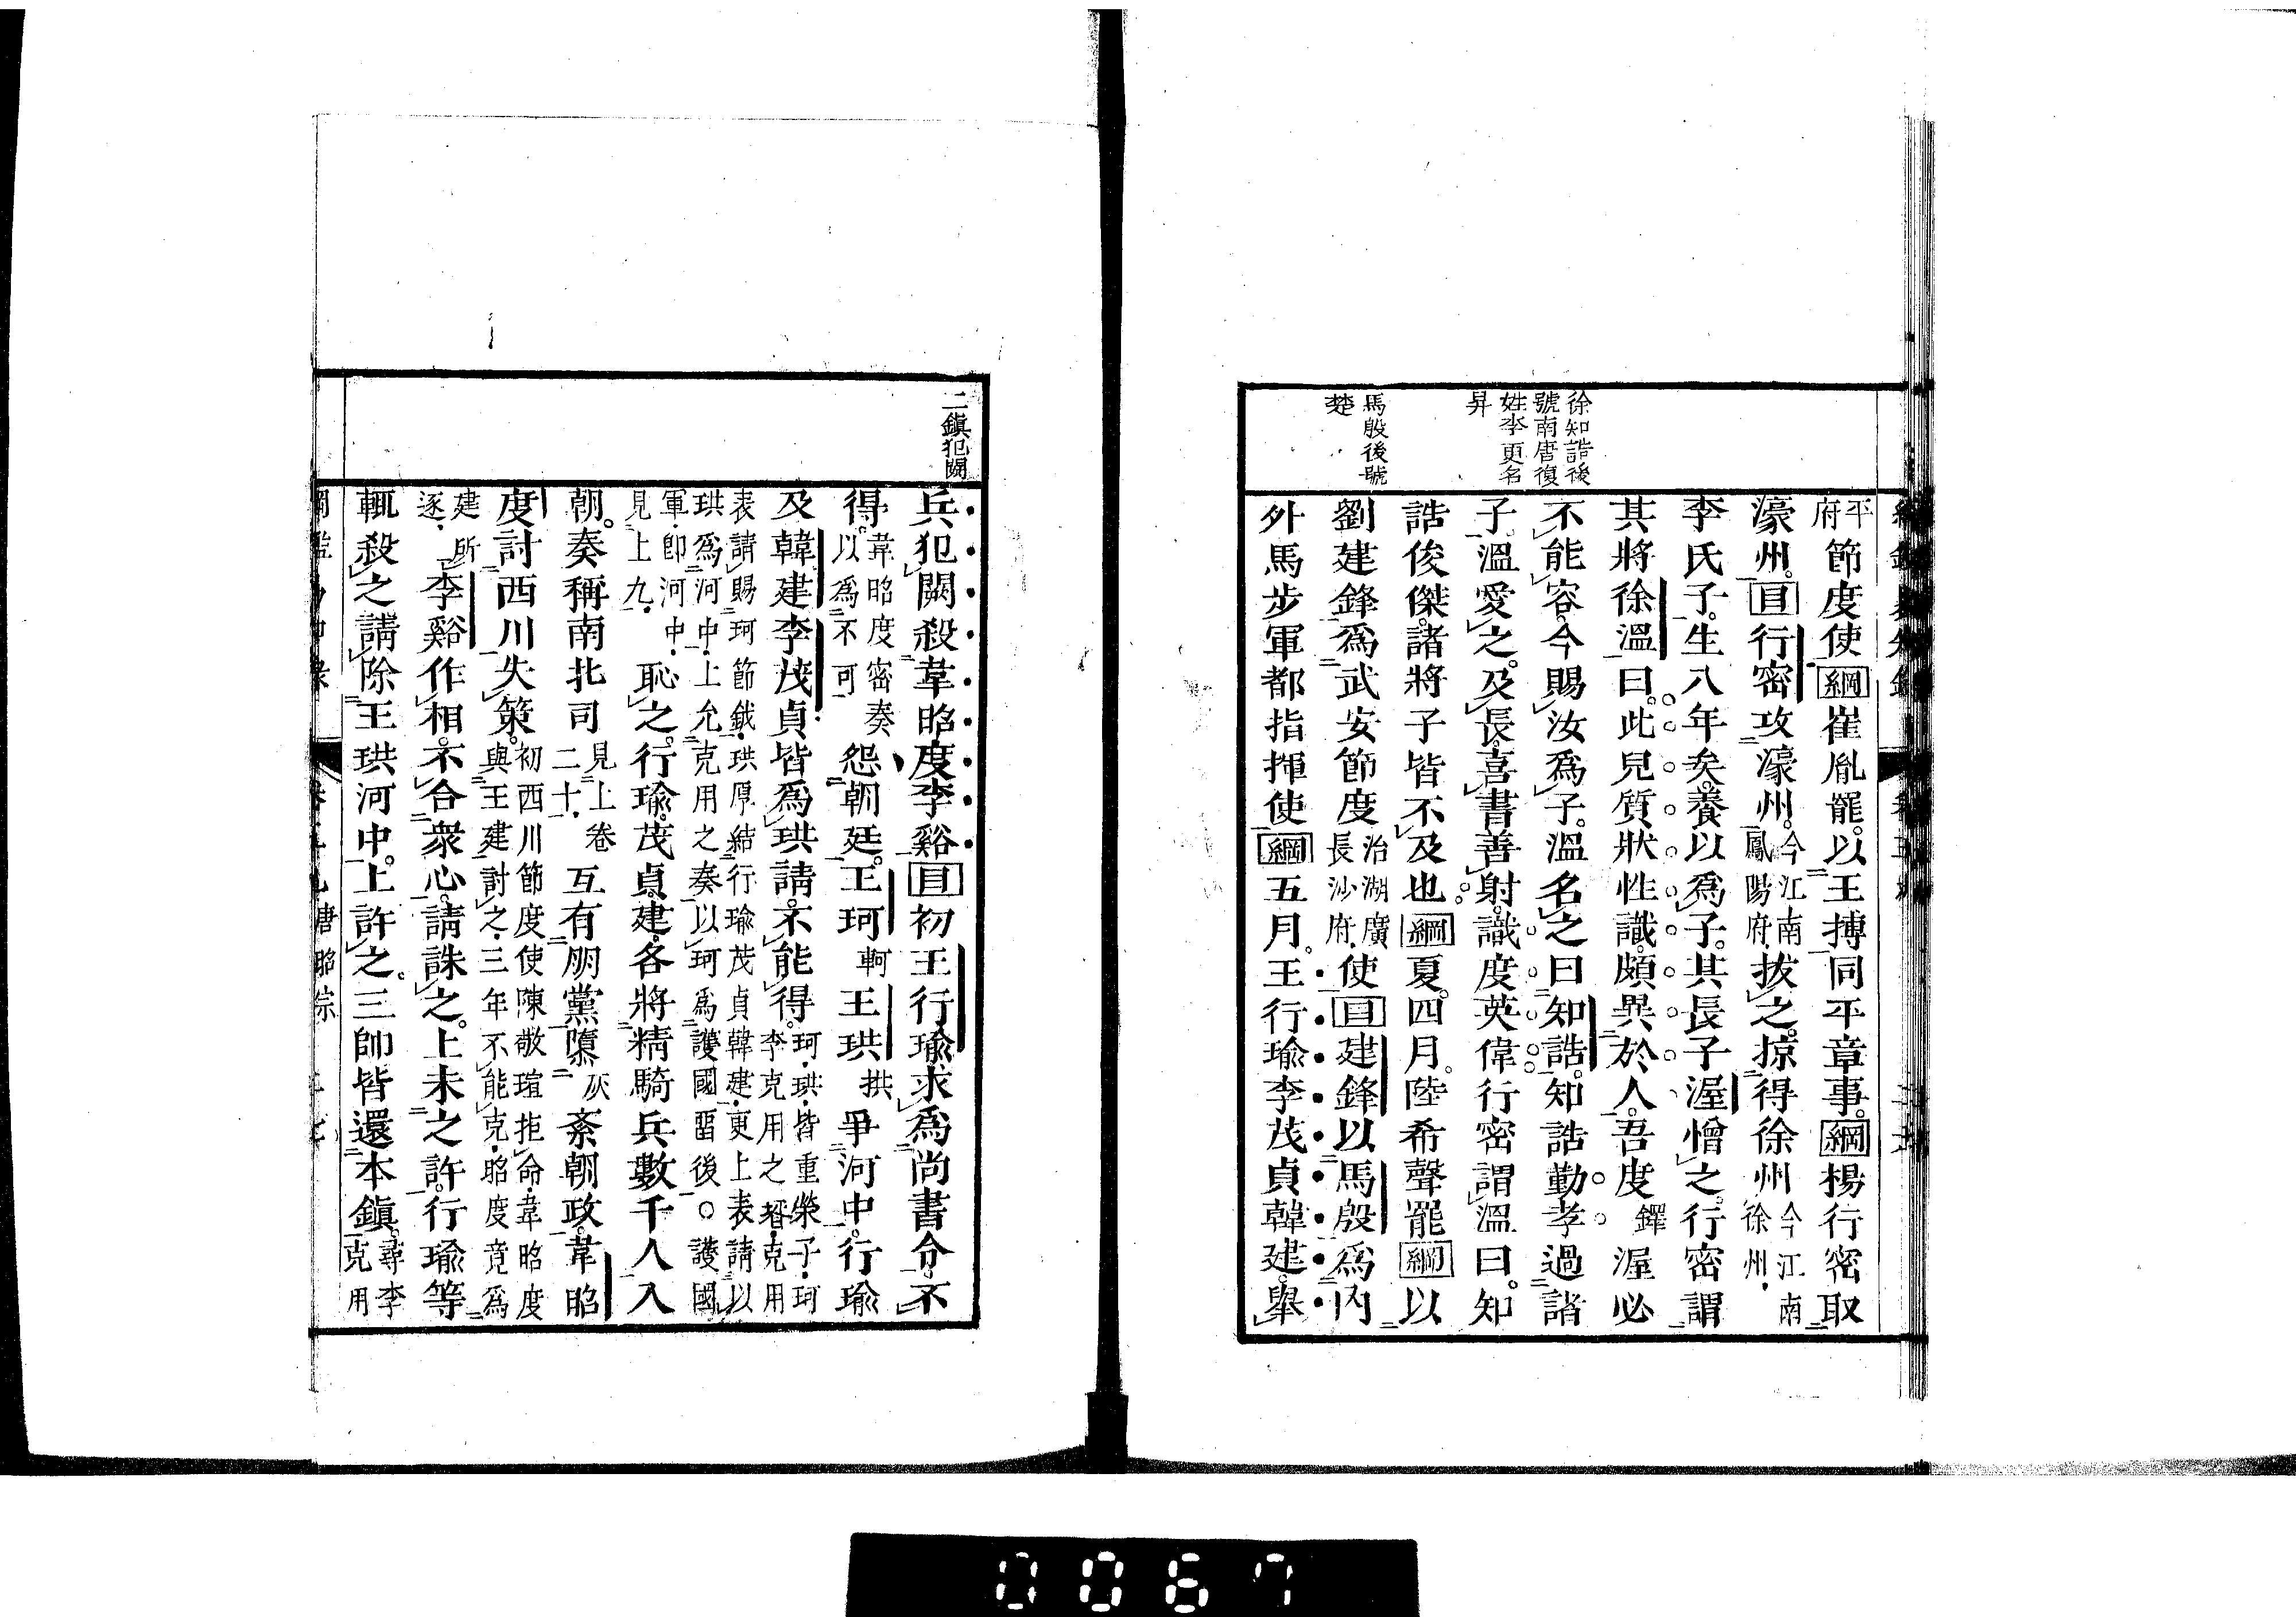 徐知誥後
號南唐復
姓李更名
昇
馬殷後號
楚
平府節度使綱崔胤罷。以王摶同平章事。綱楊行密取
濠州。目行密攻濠州。今江南鳳陽府拔之。掠得徐州今江南徐州
李氏子。生八年矣。養以爲子。其長子渥憎之。行密謂
其將徐溫曰。此兒質狀性識。頗異於人。吾度鐸渥必
不能容。今賜汝爲子。溫名之曰知誥。知誥勤孝過諸
子。溫愛之。及長。喜書善射。識度英偉。行密謂溫曰。知
誥俊傑。諸將子皆不及也。綱夏。四月。陸希聲罷綱以
劉建鋒爲武安節度治湖廣長沙府使目建鋒以馬殷爲內
外馬步軍都指揮使綱五月。王行瑜李茂貞韓建。舉
二鎭犯闕
兵犯闕殺韋昭度李谿目初王行瑜求爲尚書令。不
得。韋昭度密奏以爲不可怨朝廷。王珂軻王珙拱爭河中。行瑜
及韓建李茂貞皆爲珙請。不能得。珂珙皆重榮子珂李克用之壻克用
表請賜珂節鉞珙厚結行瑜茂貞韓建更上表請以
珙爲河中上允克用之奏以珂爲護國留後○護國
軍卽河中見上九恥之。行瑜茂貞建。各將精騎兵數千人入
朝。奏稱南北司見上卷二十互有朋黨隳灰紊朝政。韋昭
度討西川失策。初西川節度使陳敬瑄拒命韋昭度與王建討之三年不能克昭度竟爲
建所逐李谿作相。不合衆心。請誅之。上未之許。行瑜等
輒殺之請除王珙河中。上許之。三帥皆還本鎭。尋李克用
唐昭宗